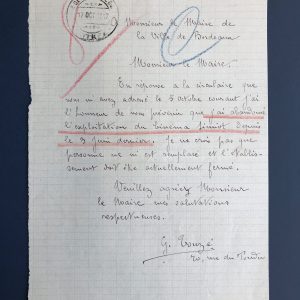 Monsieur le Maire de
la Ville de Bordeaux
Monsieur le Maire,
En réponse à la circulaire que
vous m'avez adressé le 5 octobre courant j'ai
l'honneur de vous prévenir que j'ai abandonné
l'exploitation du Cinéma depuis
le 3 Juin dernier. Je ne crois pas que
personne ne m'ait remplacé et l'établis-
sement doit être actuellement fermé.
Veuillez agréer Monsieur
le Maire mes salutations
respectueuses.
G.
20, rue du